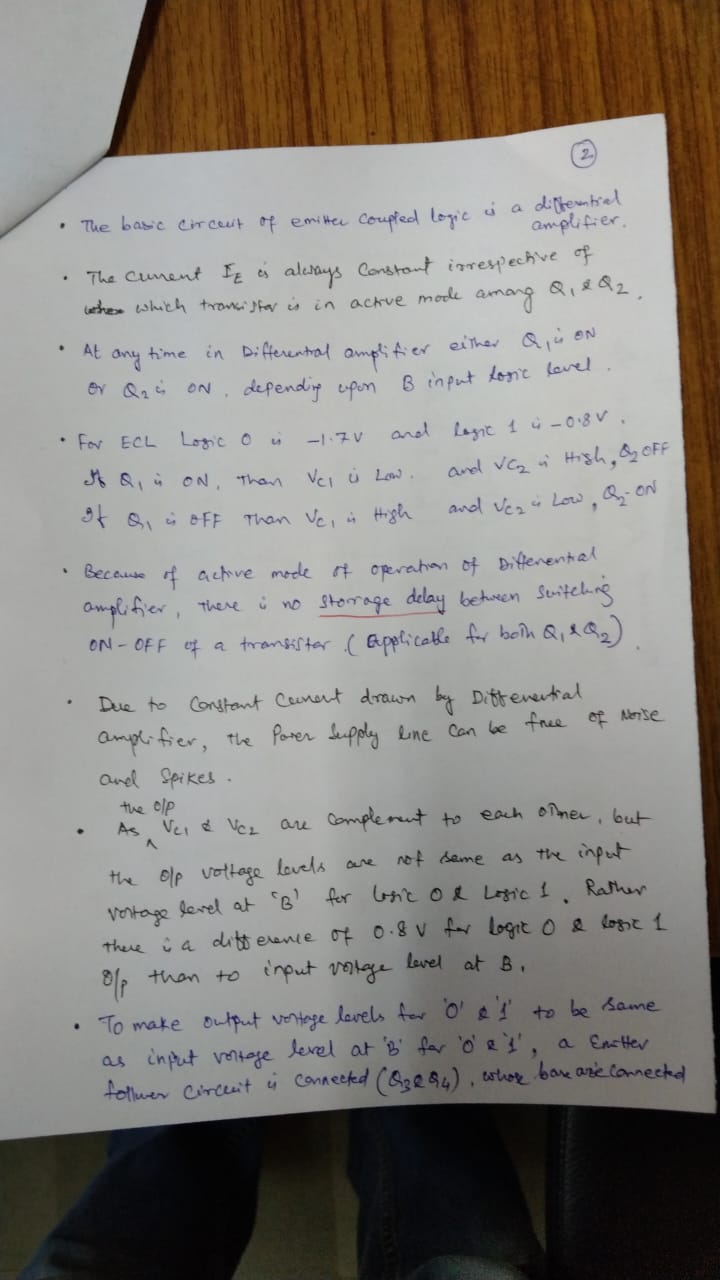 2
• The basic circuit of emitter coupled logic is a differential
amplifier.
• The current IE is always constant irrespective of
which transistor is in active mode among Q1 & Q2.
• At any time in Differential amplifier either Q1 is ON
or Q2 is ON, depending upon B input logic level.
• For ECL Logic 0 is -1.7V and logic 1 is -0.8V.
If Q1 is ON, Than VC1 is Low. and VC2 is High, Q2 OFF
If Q1 is OFF Than VC1 is High and VC2 is Low, Q2-ON
• Because of active mode of operation of Differential
amplifier, there is no storrage delay between switching
ON-OFF of a transistor. (Applicable for both Q1 & Q2)
• Due to Constant Current drawn by Differential
amplifier, the Power Supply line can be free of Noise
and Spikes.
the o/p
• As VC1 & VC2 are complement to each other, but
the o/p voltage levels are not same as the input
voltage level at 'B' for logic 0 & Logic 1. Rather
there is a difference of 0.8V for logic 0 & logic 1
o/p than to input voltage level at B.
• To make output voltage levels for '0' & '1' to be same
as input voltage level at 'B' for '0' & '1', a Emitter
follower circuit is connected (Q3 & Q4), whose base are connected